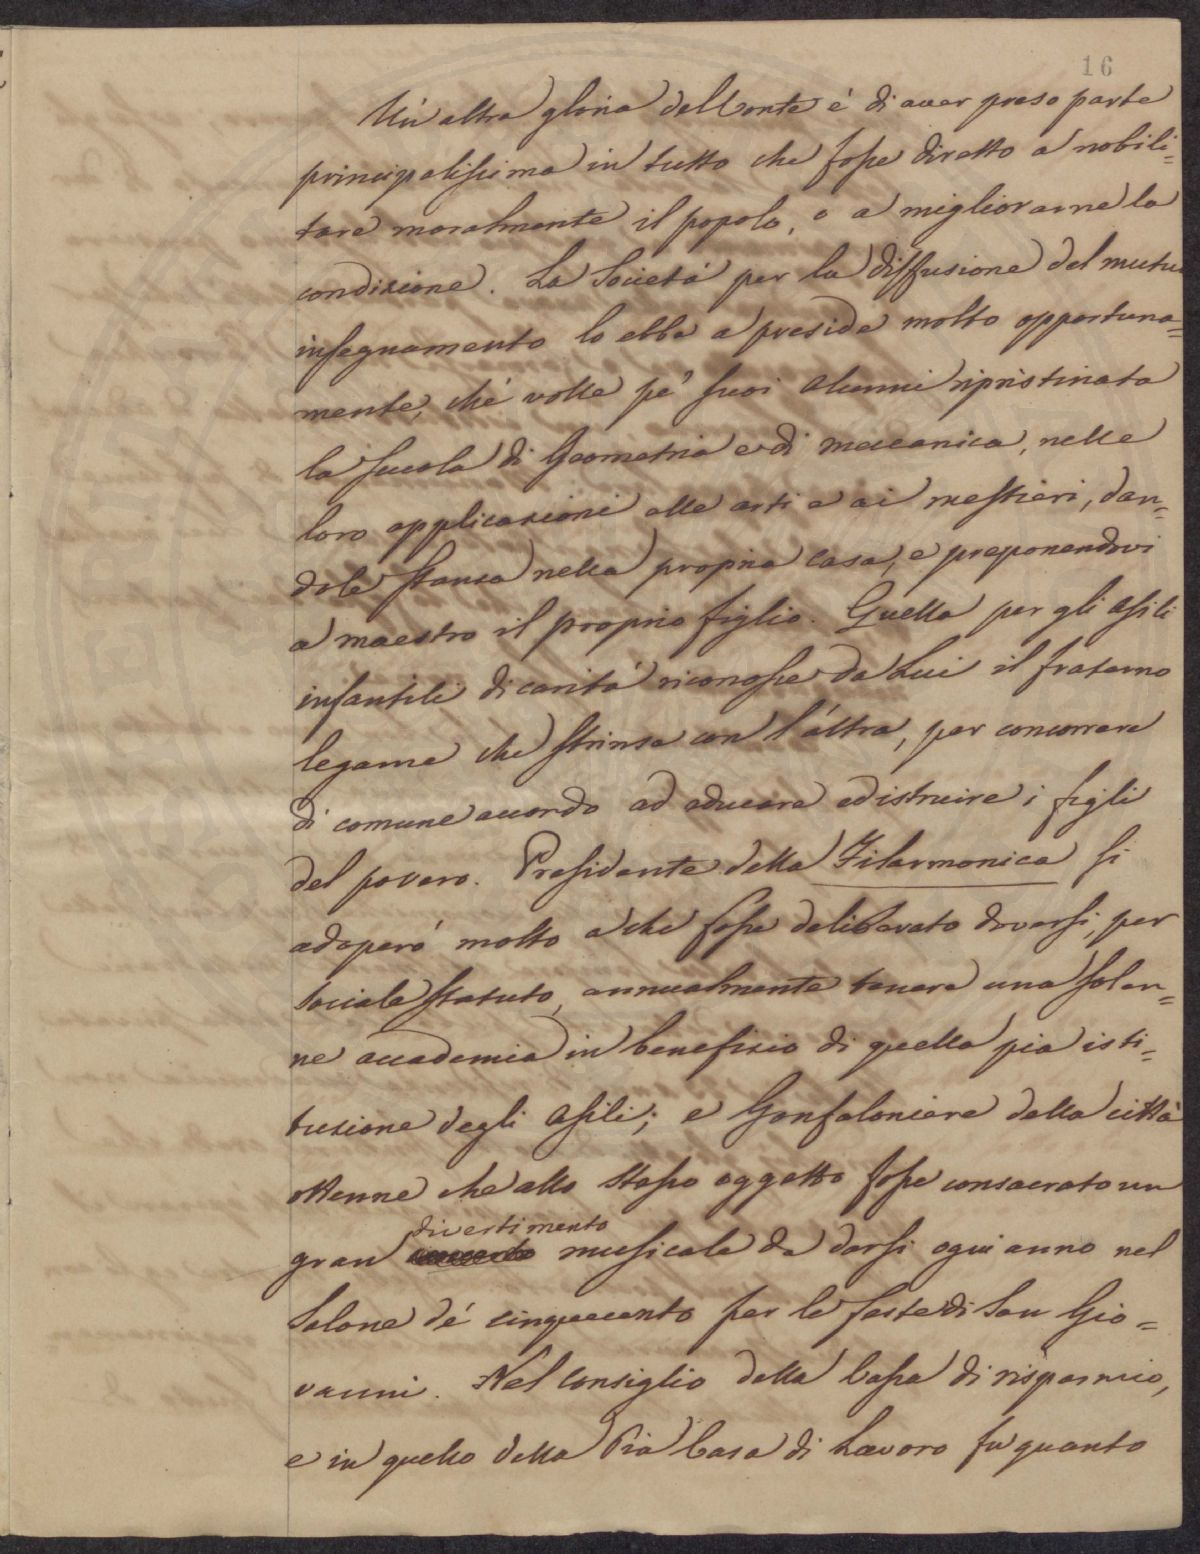 16
Un'altra gloria del Conte é di aver preso parte
principalissima in tutto che fosse diretto a nobili=
tare moralmente il popolo, o a migliorarne la
condizione. La Società per la diffusione del mutuo
insegnamento lo ebbe a preside molto opportuna=
mente, ché volle pe' suoi alunni ripristinata
la scuola di Geometria e di meccanica, nelle
loro applicazioni alle arti e ai mestieri, dan=
dole stanza nella propria casa, e preponendovi
a maestro il proprio figlio. Quella per gli Asili
infantili di carità riconosce da Lui il fraterno
legame che strinse con l'altra, per concorrere
di comune accordo ad educare ed istruire i figli
del povero. Presidente della Filarmonica si
adoperó molto a che fosse deliberato doversi, per
sociale statuto, annualmente tenere una solen=
ne accademia in benefizio di quella pia isti=
tuzione degli Asili; e Gonfaloniere della città
ottenne che allo stesso oggetto fosse consacrato un
divertimento
gran concerto musicale da darsi ogni anno nel
Salone de' cinquecento per le feste di San Gio=
vanni. Nel Consiglio della Cassa di risparmio,
e in quello della Pia Casa di Lavoro fu quanto